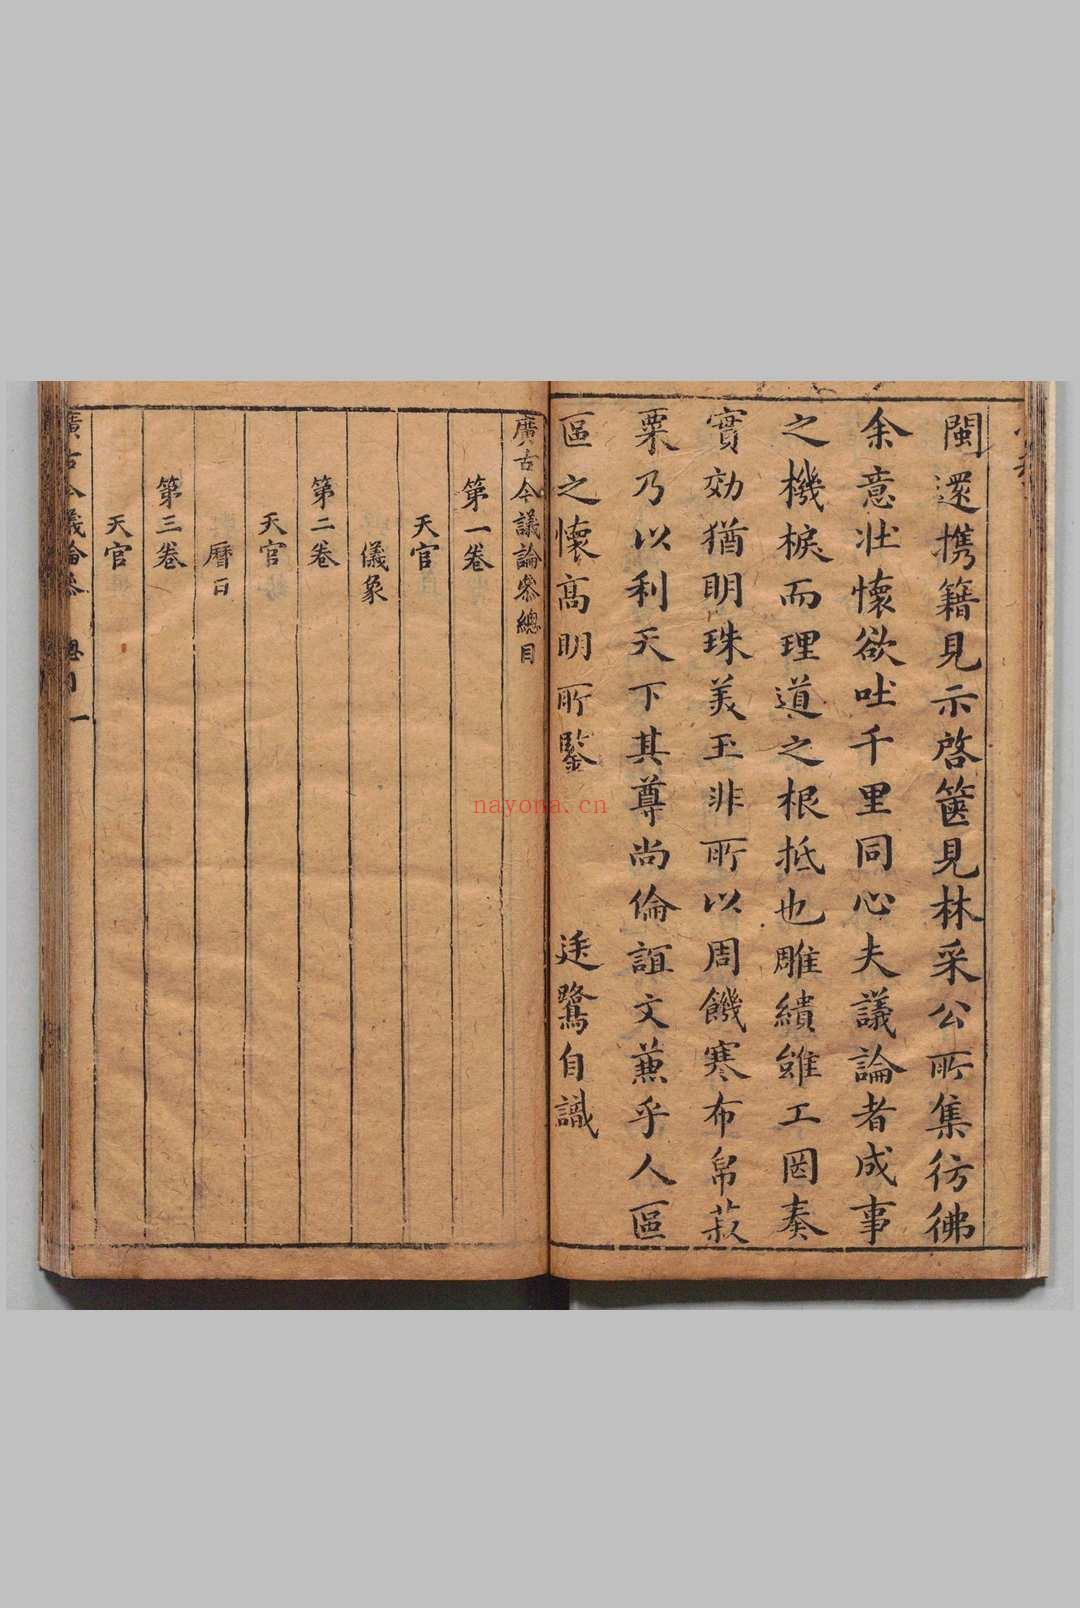 閩還携籍見示啓篋見林采公所集彷彿
余意壯懷欲吐千里同心夫議論者成事
之機棙而理道之根抵也雕繢雖工罔奏
實効猶明珠美玉非所以周饑寒布帛菽
粟乃以利天下其尊尚倫誼文蕙乎人區
區之懷高明所鑒 廷鷺自識
廣古今議論參總目
第一卷
天官
儀象
第二卷
天官
曆日
第三卷
天官
廣古今議論參 總目 一
nayona.cn